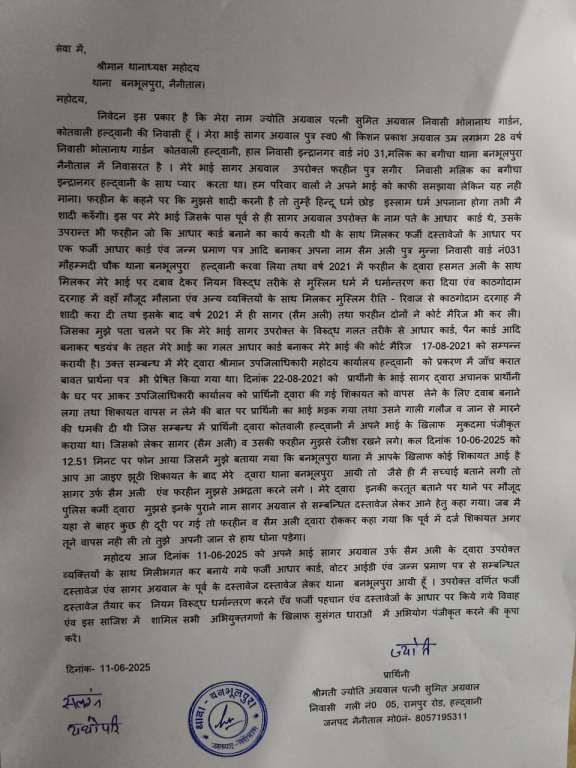 सेवा में,
श्रीमान थानाध्यक्ष महोदय
थाना बनभूलपुरा, नैनीताल।
महोदय,
निवेदन इस प्रकार है कि मेरा नाम ज्योति अग्रवाल पत्नी सुमित अग्रवाल निवासी भोलानाथ गार्डन,
कोतवाली हल्द्वानी की निवासी हूँ । मेरा भाई सागर अग्रवाल पुत्र स्व0 श्री किशन प्रकाश अग्रवाल उम्र लगभग 28 वर्ष
निवासी भोलानाथ गार्डन कोतवाली हल्द्वानी, हाल निवासी इन्द्रानगर वार्ड नं0 31,मलिक का बगीचा थाना बनभूलपुरा
नैनीताल में निवासरत है । मेरे भाई सागर अग्रवाल उपरोक्त फरहीन पुत्र सगीर निवासी मलिक का बगीचा
इन्द्रानगर हल्द्वानी के साथ प्यार करता था। हम परिवार वालो ने अपने भाई को काफी समझाया लेकिन यह नही
माना। फरहीन के कहने पर कि मुझसे शादी करनी है तो तुम्हें हिन्दू धर्म छोड़ इस्लाम धर्म अपनाना होगा तभी मै
शादी करुँगी। इस पर मेरे भाई जिसके पास पूर्व से ही सागर अग्रवाल उपरोक्त के नाम पते के आधार कार्ड थे, उसके
उपरान्त भी फरहीन जो कि आधार कार्ड बनाने का कार्य करती थी के साथ मिलकर फर्जी दस्तावेजों के आधार पर
एक फर्जी आधार कार्ड एंव जन्म प्रमाण पत्र आदि बनाकर अपना नाम सैम अली पुत्र मुन्ना निवासी वार्ड नं031
मौहम्मदी चौक थाना बनभूलपुरा हल्द्वानी करवा लिया तथा वर्ष 2021 में फरहीन के द्वारा हसमत अली के साथ
मिलकर मेरे भाई पर दबाव देकर नियम विरुद्ध तरीके से मुस्लिम धर्म में धर्मान्तरण करा दिया एंव काठगोदाम
दरगाह में वहाँ मौजूद मौलाना एंव अन्य व्यक्तियों के साथ मिलकर मुस्लिम रीति - रिवाज से काठगोदाम दरगाह में
शादी करा दी तथा इसके बाद वर्ष 2021 में ही सागर (सैम अली) तथा फरहीन दोनों ने कोर्ट मैरिज भी कर ली।
जिसका मुझे पता चलने पर कि मेरे भाई सागर उपरोक्त के विरुद्ध गलत तरीके से आधार कार्ड, पैन कार्ड आदि
बनाकर षडयंत्र के तहत मेरे भाई का गलत आधार कार्ड बनाकर मेरे भाई की कोर्ट मैरिज 17-08-2021 को सम्पन्न
करायी है। उक्त सम्बन्ध में मेरे द्वारा श्रीमान उपजिलाधिकारी महोदय कार्यालय हल्द्वानी को प्रकरण में जाँच करात
बावत प्रार्थना पत्र भी प्रेषित किया गया था। दिनांक 22-08-2021 को प्रार्थीनी के भाई सागर द्वारा अचानक प्रार्थीनी
के घर पर आकर उपजिलाधिकारी कार्यालय को प्रार्थिनी द्वारा की गई शिकायत को वापस लेने के लिए दवाब बनाने
लगा तथा शिकायत वापस न लेने की बात पर प्रार्थिनी का भाई भडक गया तथा उसने गाली गलौज व जान से मारने
की धमकी दी थी जिस सम्बन्ध में प्रार्थिनी द्वारा कोतवाली हल्द्वानी मे अपने भाई के खिलाफ मुकदमा पंजीकृत
कराया था। जिसको लेकर सागर (सैम अली) व उसकी फरहीन मुझसे रंजीश रखने लगे। कल दिनांक 10-06-2025 को
12.51 मिनट पर फोन आया जिसमे मुझे बताया गया कि बनभूलपुरा थाना में आपके खिलाफ कोई शिकायत आई है
आप आ जाइए झूठी शिकायत के बाद मेरे द्वारा थाना बनभूलपुरा आयी तो जैसे ही मै सच्चाई बताने लगी तो
सागर उर्फ सैम अली एंव फरहीन मुझसे अभद्रता करने लगे । मेरे द्वारा इनकी करतूत बताने पर थाने पर मौजूद
पुलिस कर्मी द्वारा मुझसे इनके पुराने नाम सागर अग्रवाल से सम्बन्धित दस्तावेज लेकर आने हेतु कहा गया। जब मैं
यहा से बाहर कुछ ही दूरी पर गई तो फरहीन व सैम अली द्वारा रोककर कहा गया कि पूर्व में दर्ज शिकायत अगर
तूने वापस नही ली तो तुझे अपनी जान से हाथ धोना पड़ेगा।
महोदय आज दिनांक 11-06-2025 को अपने भाई सागर अग्रवाल उर्फ सैम अली के द्वारा उपरोक्त
व्यक्तियों के साथ मिलीभगत कर बनाये गये फर्जी आधार कार्ड, वोटर आईडी एंव जन्म प्रमाण पत्र से सम्बन्धित
दस्तावेज एंव सागर अग्रवाल के पूर्व के दस्तावेज दस्तवेज लेकर थाना बनभूलपुरा आयी हूँ । उपरोक्त वर्णित फर्जी
दस्तावेज तैयार कर नियम विरुद्ध धर्मान्तरण करने एँव फर्जी पहचान एंव दस्तावेजों के आधार पर किये गये विवाह
एंव इस साजिश में शामिल सभी अभियुक्तगणों के खिलाफ सुसंगत धाराओं में अभियोग पंजीकृत करने की कृपा
करे।
ज्योति
दिनांक- 11-06-2025
प्रार्थिनी
श्रीमती ज्योति अग्रवाल पत्नी सुमित अग्रवाल
निवासी गली नं0 05, रामपुर रोड, हल्द्वानी
जनपद नैनीताल मो0नं- 8057195311
संलग्न
यथोपरि
थाना - बनभूलपुरा
जनपद-नैनीताल